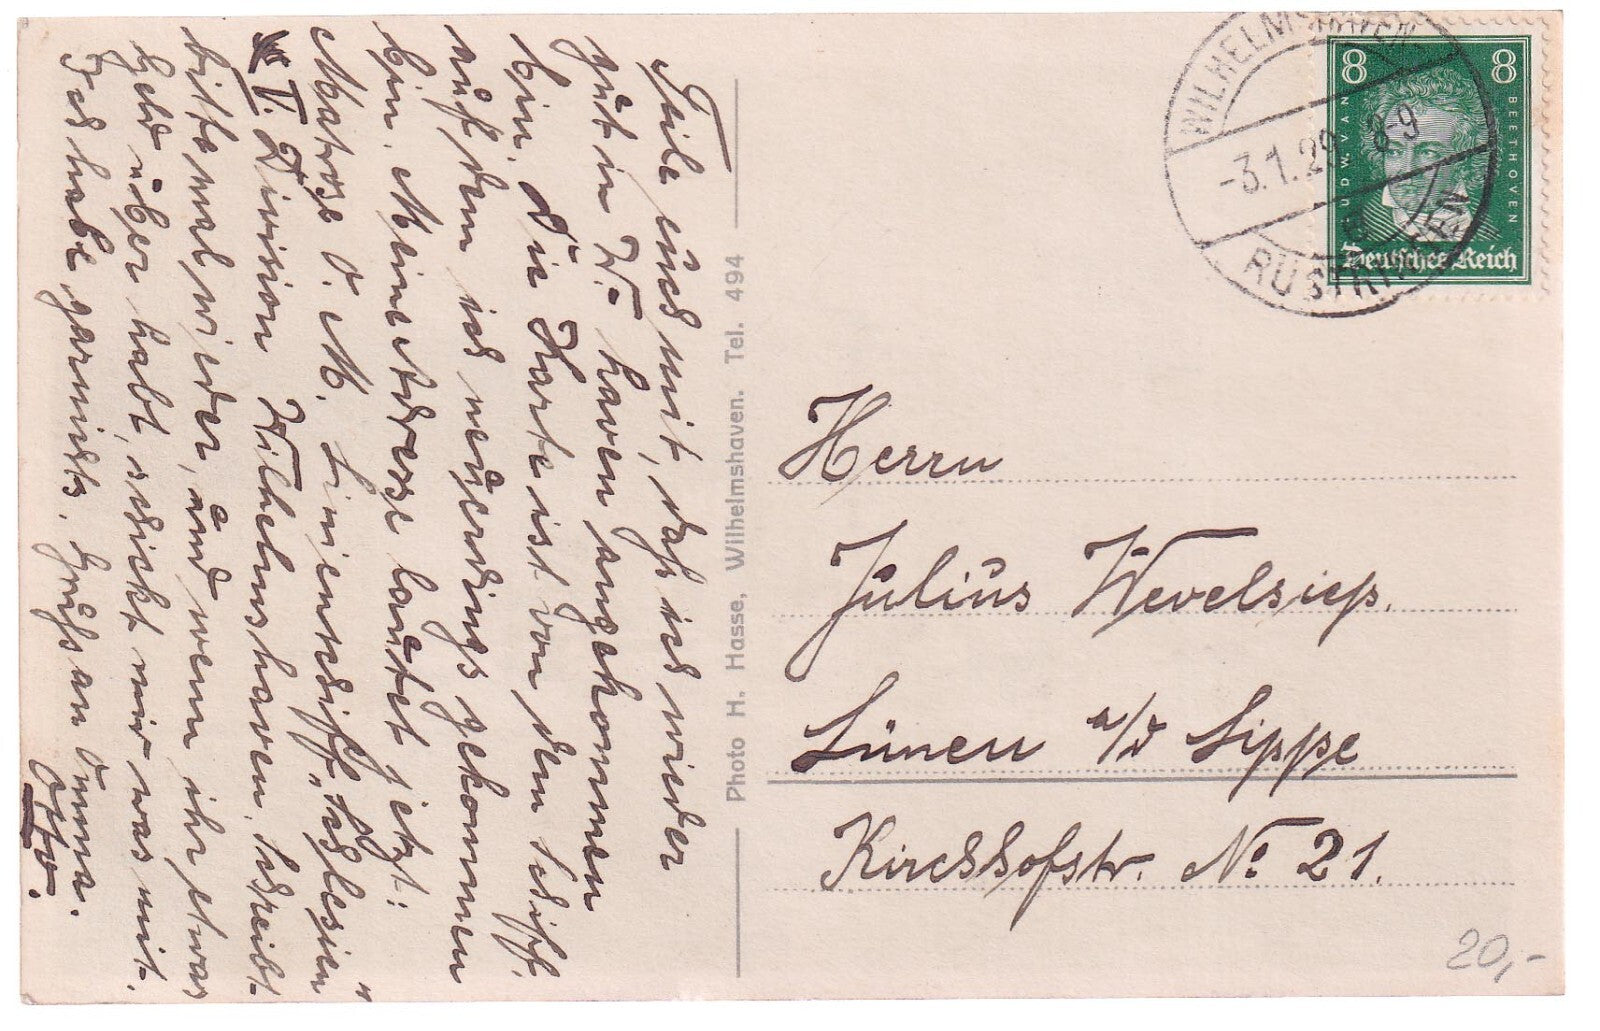 Teile euch mit, daß ich wieder
gut in W.-haven angekommen
bin. Die Karte ist von dem Schiff,
auf dem ich neuerdings gekommen
bin. Meine Adresse lautet jetzt:
Matrose O. M. Linienschiff „Schlesien"
I. Division Wilhelmshaven. Schreibt
bitte mal wieder, und wenn ihr etwas
Geld über habt, schickt mir was mit.
Ich habe garnichts. Gruß an Omma.
Otto.
Photo H. Hasse, Wilhelmshaven. Tel. 494
WILHELMSHAVEN-
-3.1.29. 8-9
RÜSTRINGEN
8 8
LUDW. VAN BEETHOVEN
Deutsches Reich
Herrn
Julius Wevelsiep.
Lünen a/d Lippe
Kirchhofstr. No. 21.
20,-